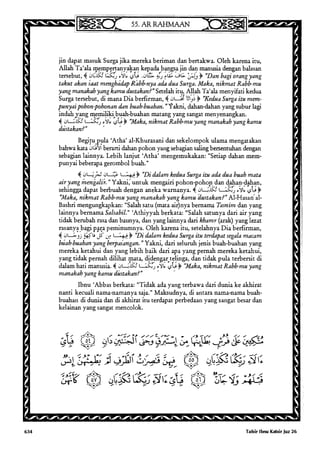 55. AR RAHMAAN
jin dapat masuk Surga jika mereka beriman dan bertakwa. Oleh karena itu,
Allah Ta'ala mempertanyakan kepada bangsa jin dan manusia dengan balasan
tersebut, ﴿ وَلِمَنْ خَافَ مَقَامَ رَبِّهِ جَنَّتَانِ. فَبِأَيِّ ءَالَآءِ رَبِّكُمَا تُكَذِّبَانِ ﴾ "Dan bagi orang yang
takut akan saat menghadap Rabb-nya ada dua Surga. Maka, nikmat Rabb-mu
yang manakah yang kamu dustakan?" Setelah itu, Allah Ta'ala menyifati kedua
Surga tersebut, di mana Dia berfirman, ﴿ ذَوَاتَآ أَفْنَانٍ ﴾ "Kedua Surga itu mem-
punyai pohon-pohonan dan buah-buahan." Yakni, dahan-dahan yang subur lagi
indah yang memiliki buah-buahan matang yang sangat menyenangkan.
﴿ فَبِأَيِّ ءَالَآءِ رَبِّكُمَا تُكَذِّبَانِ ﴾ "Maka, nikmat Rabb-mu yang manakah yang kamu
dustakan?"
Begitu pula 'Atha' al-Khurasani dan sekelompok ulama mengatakan
bahwa kata أَفْنَانٍ berarti dahan pohon yang sebagian saling bersentuhan dengan
sebagian lainnya. Lebih lanjut 'Atha' mengemukakan: "Setiap dahan mem-
punyai beberapa gerombol buah."
﴿ فِيهِمَا عَيْنَانِ تَجْرِيَانِ ﴾ "Di dalam kedua Surga itu ada dua buah mata
air yang mengalir." Yakni, untuk mengairi pohon-pohon dan dahan-dahan,
sehingga dapat berbuah dengan aneka warnanya. ﴿ فَبِأَيِّ ءَالَآءِ رَبِّكُمَا تُكَذِّبَانِ ﴾
"Maka, nikmat Rabb-mu yang manakah yang kamu dustakan?" Al-Hasan al-
Bashri mengungkapkan: "Salah satu (mata air)nya bernama Tasnim dan yang
lainnya bernama Salsabil." 'Athiyyah berkata: "Salah satunya dari air yang
tidak berubah rasa dan baunya, dan yang lainnya dari khamr (arak) yang lezat
rasanya bagi para peminumnya. Oleh karena itu, setelahnya Dia berfirman,
﴿ فِيهِمَا مِنْ كُلِّ فَاكِهَةٍ زَوْجَانِ ﴾ "Di dalam kedua Surga itu terdapat segala macam
buah-buahan yang berpasangan." Yakni, dari seluruh jenis buah-buahan yang
mereka ketahui dan yang lebih baik dari apa yang pernah mereka ketahui,
yang tidak pernah dilihat mata, didengar telinga, dan tidak pula terbersit di
dalam hati manusia. ﴿ فَبِأَيِّ ءَالَآءِ رَبِّكُمَا تُكَذِّبَانِ ﴾ "Maka, nikmat Rabb-mu yang
manakah yang kamu dustakan?"
Ibnu 'Abbas berkata: "Tidak ada yang terbawa dari dunia ke akhirat
nanti kecuali nama-namanya saja." Maksudnya, di antara nama-nama buah-
buahan di dunia dan di akhirat itu terdapat perbedaan yang sangat besar dan
kelainan yang sangat mencolok.
634
Tafsir Ibnu Katsir Juz 26